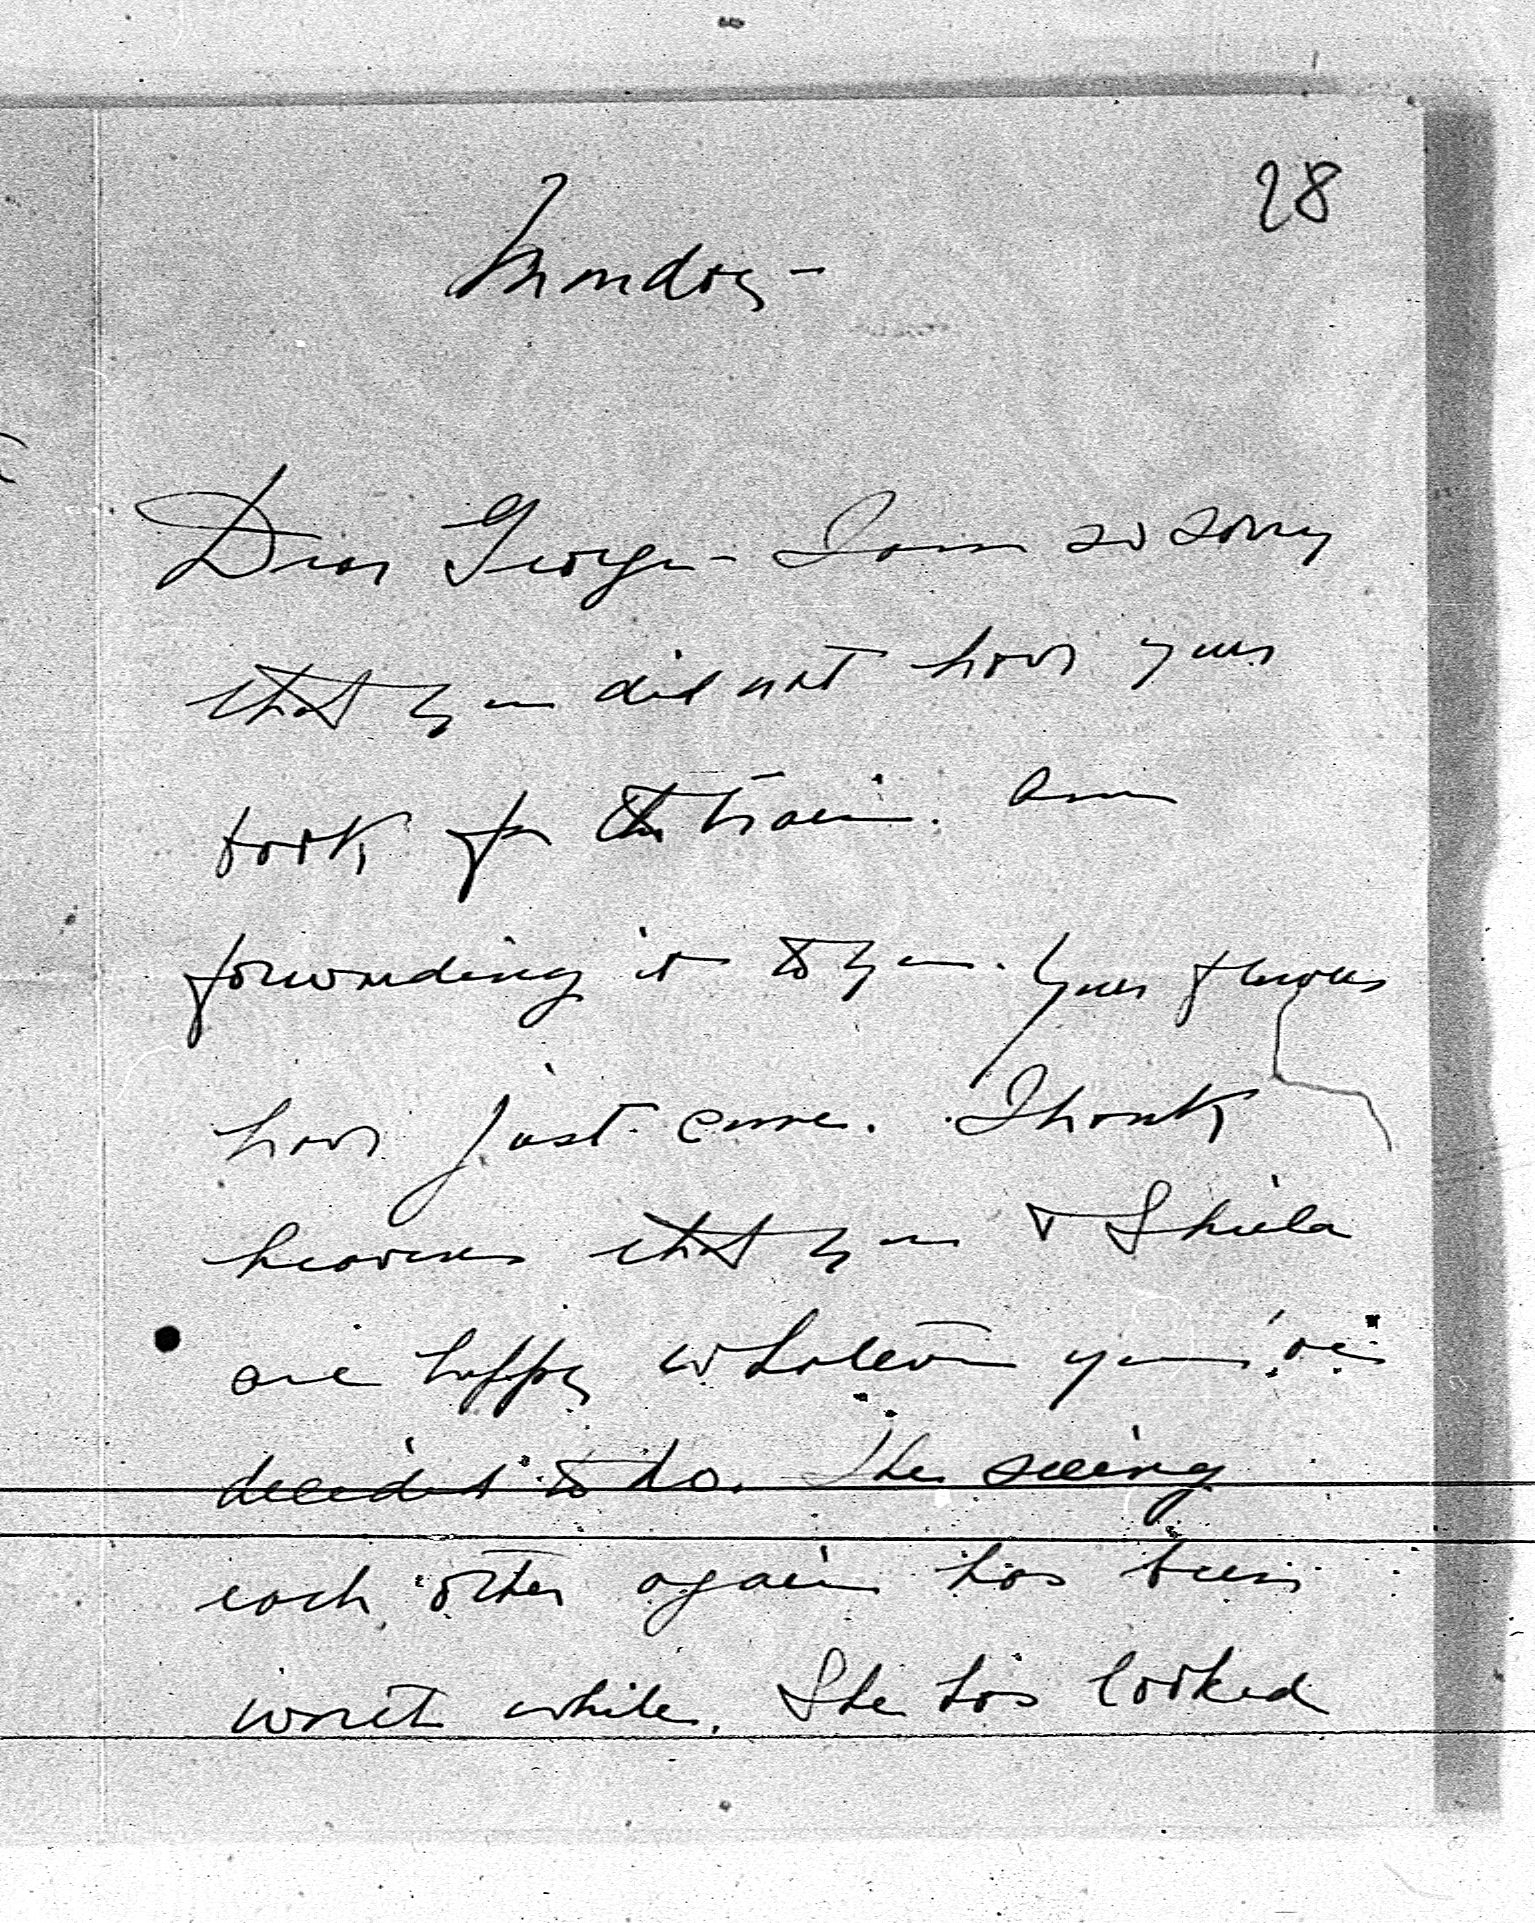 28
Monday -
Dear George - I am so sorry
that you did not have your
book for the train. Am
forwarding it to you. Your flowers
have just come. Thank
heavens that you & Sheila
are happy whatever you've
decided to do. The seeing
each other again has been
worth while. She has looked